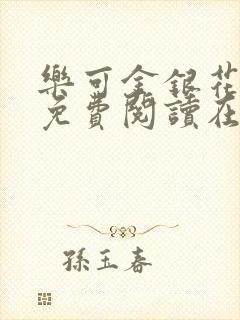 樂可金銀花
免費閱讀在
孫玉春